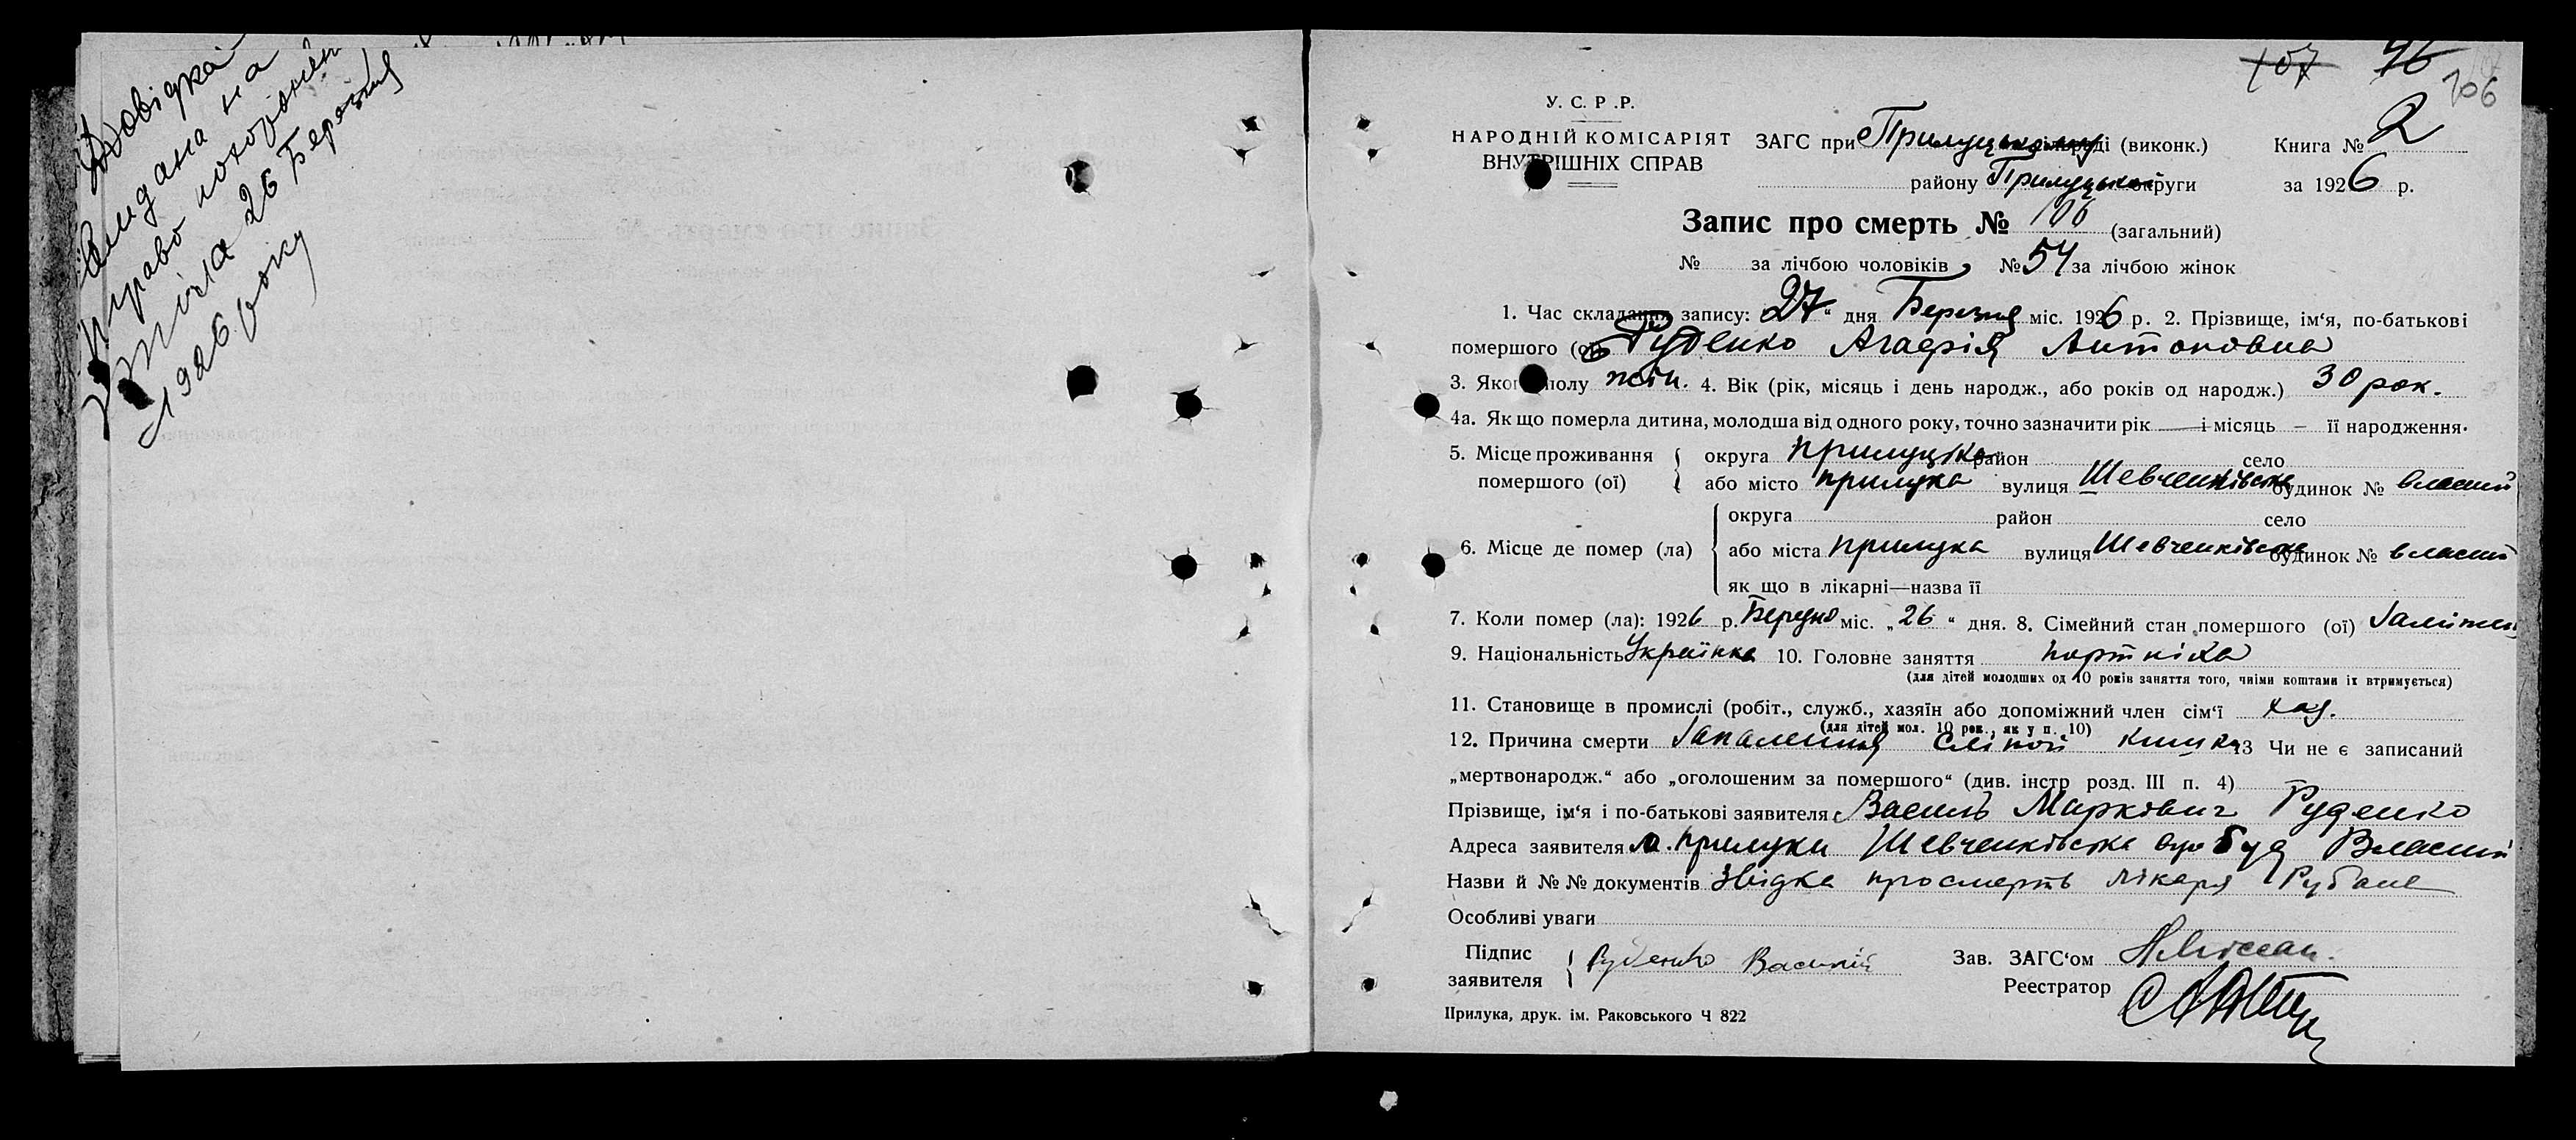 Довідка
видана на
право похоронен
тіла 26 Березня
1926 року
107 96
106
У. С. Р .Р.
НАРОДНІЙ КОМІСАРІЯТ
ВНУТРІШНІХ СПРАВ
ЗАГС при Прилуцькому міськраді (виконк.) Книга № 2
району Прилуцької округи за 1926 р.
Запис про смерть № 106 (загальний)
№ за лічбою чоловіків, № 54 за лічбою жінок
1. Час складання запису: 27 “ дня Березня міс. 1926 р. 2. Прізвище, ім‘я, по-батькові
помершого (ої) Руденко Агафія Антоновна
3. Якого полу жін. 4. Вік (рік, місяць і день народж., або років од народж.) 30 рок.
4а. Як що померла дитина, молодша від одного року, точно зазначити рік — і місяць – її народження.
5. Місце проживання помершого (ої) округа прилуцька район село
або місто прилука вулиця Шевченківська будинок № власний
6. Місце де помер (ла) округа район село
або міста прилука вулиця Шевченківська будинок № власний
як що в лікарні—назва її
7. Коли помер (ла): 1926 р. Березня міс. „26“ дня. 8. Сімейний стан помершого (ої)
9. Національність Українка 10. Головне заняття портніха
(для дітей молодших од 10 років заняття того, чиїми коштами їх втримується)
11. Становище в промислі (робіт., служб., хазяїн або допоміжний член сім‘ї хаз.
(для дітей мол. 10 рок., як у п. 10)
12. Причина смерти Запалення сліпої кишки 13 Чи не є записаний
„мертвонародж.“ або „оголошеним за помершого“ (див. інстр розд. III п. 4)
Прізвище, ім‘я і по-батькові заявителя Василь Маркович Руденко
Адреса заявителя м. прилуки Шевченківська вул буд Власний
Назви й №№ документів звідка про смерть лікаря Рубана
Особливі уваги
Підпис заявителя Руденко Василій Зав. ЗАГС‘ом
Реестратор
Прилука, друк. ім. Раковського Ч 822